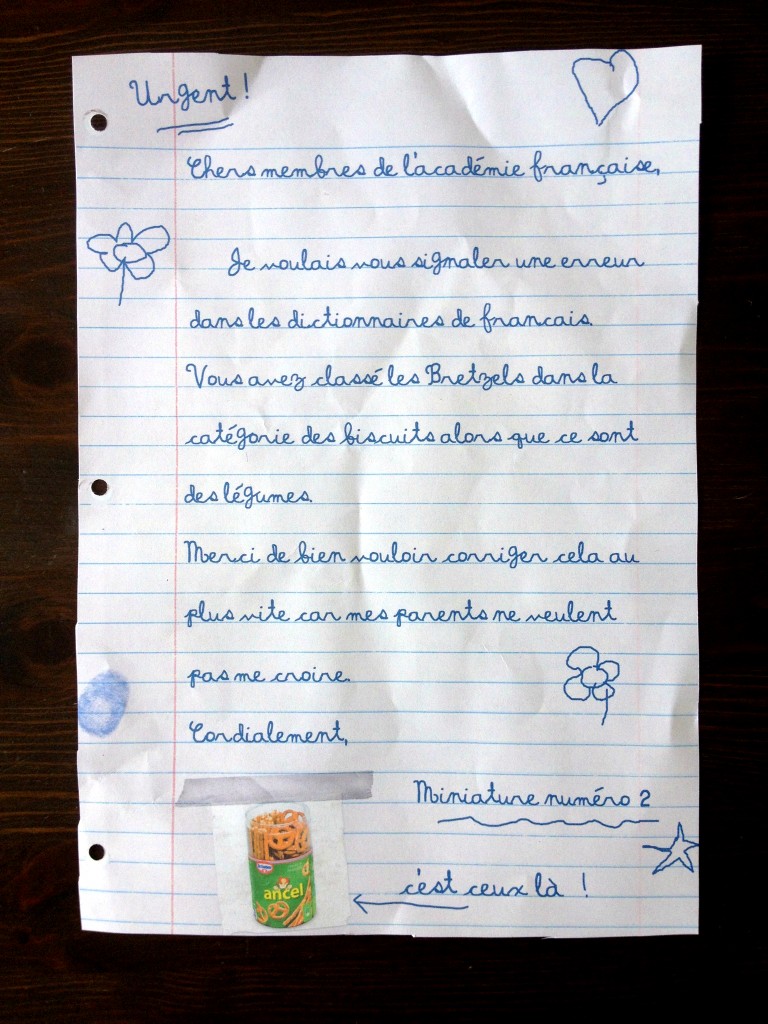 Urgent !
Chers membres de l'académie française,
Je voulais vous signaler une erreur
dans les dictionnaires de francais.
Vous avez classé les Bretzels dans la
catégorie des biscuits alors que ce sont
des légumes.
Merci de bien vouloir corriger cela au
plus vite car mes parents ne veulent
pas me croire.
Cordialement,
Miniature numéro 2
ancel
c'est ceux là !